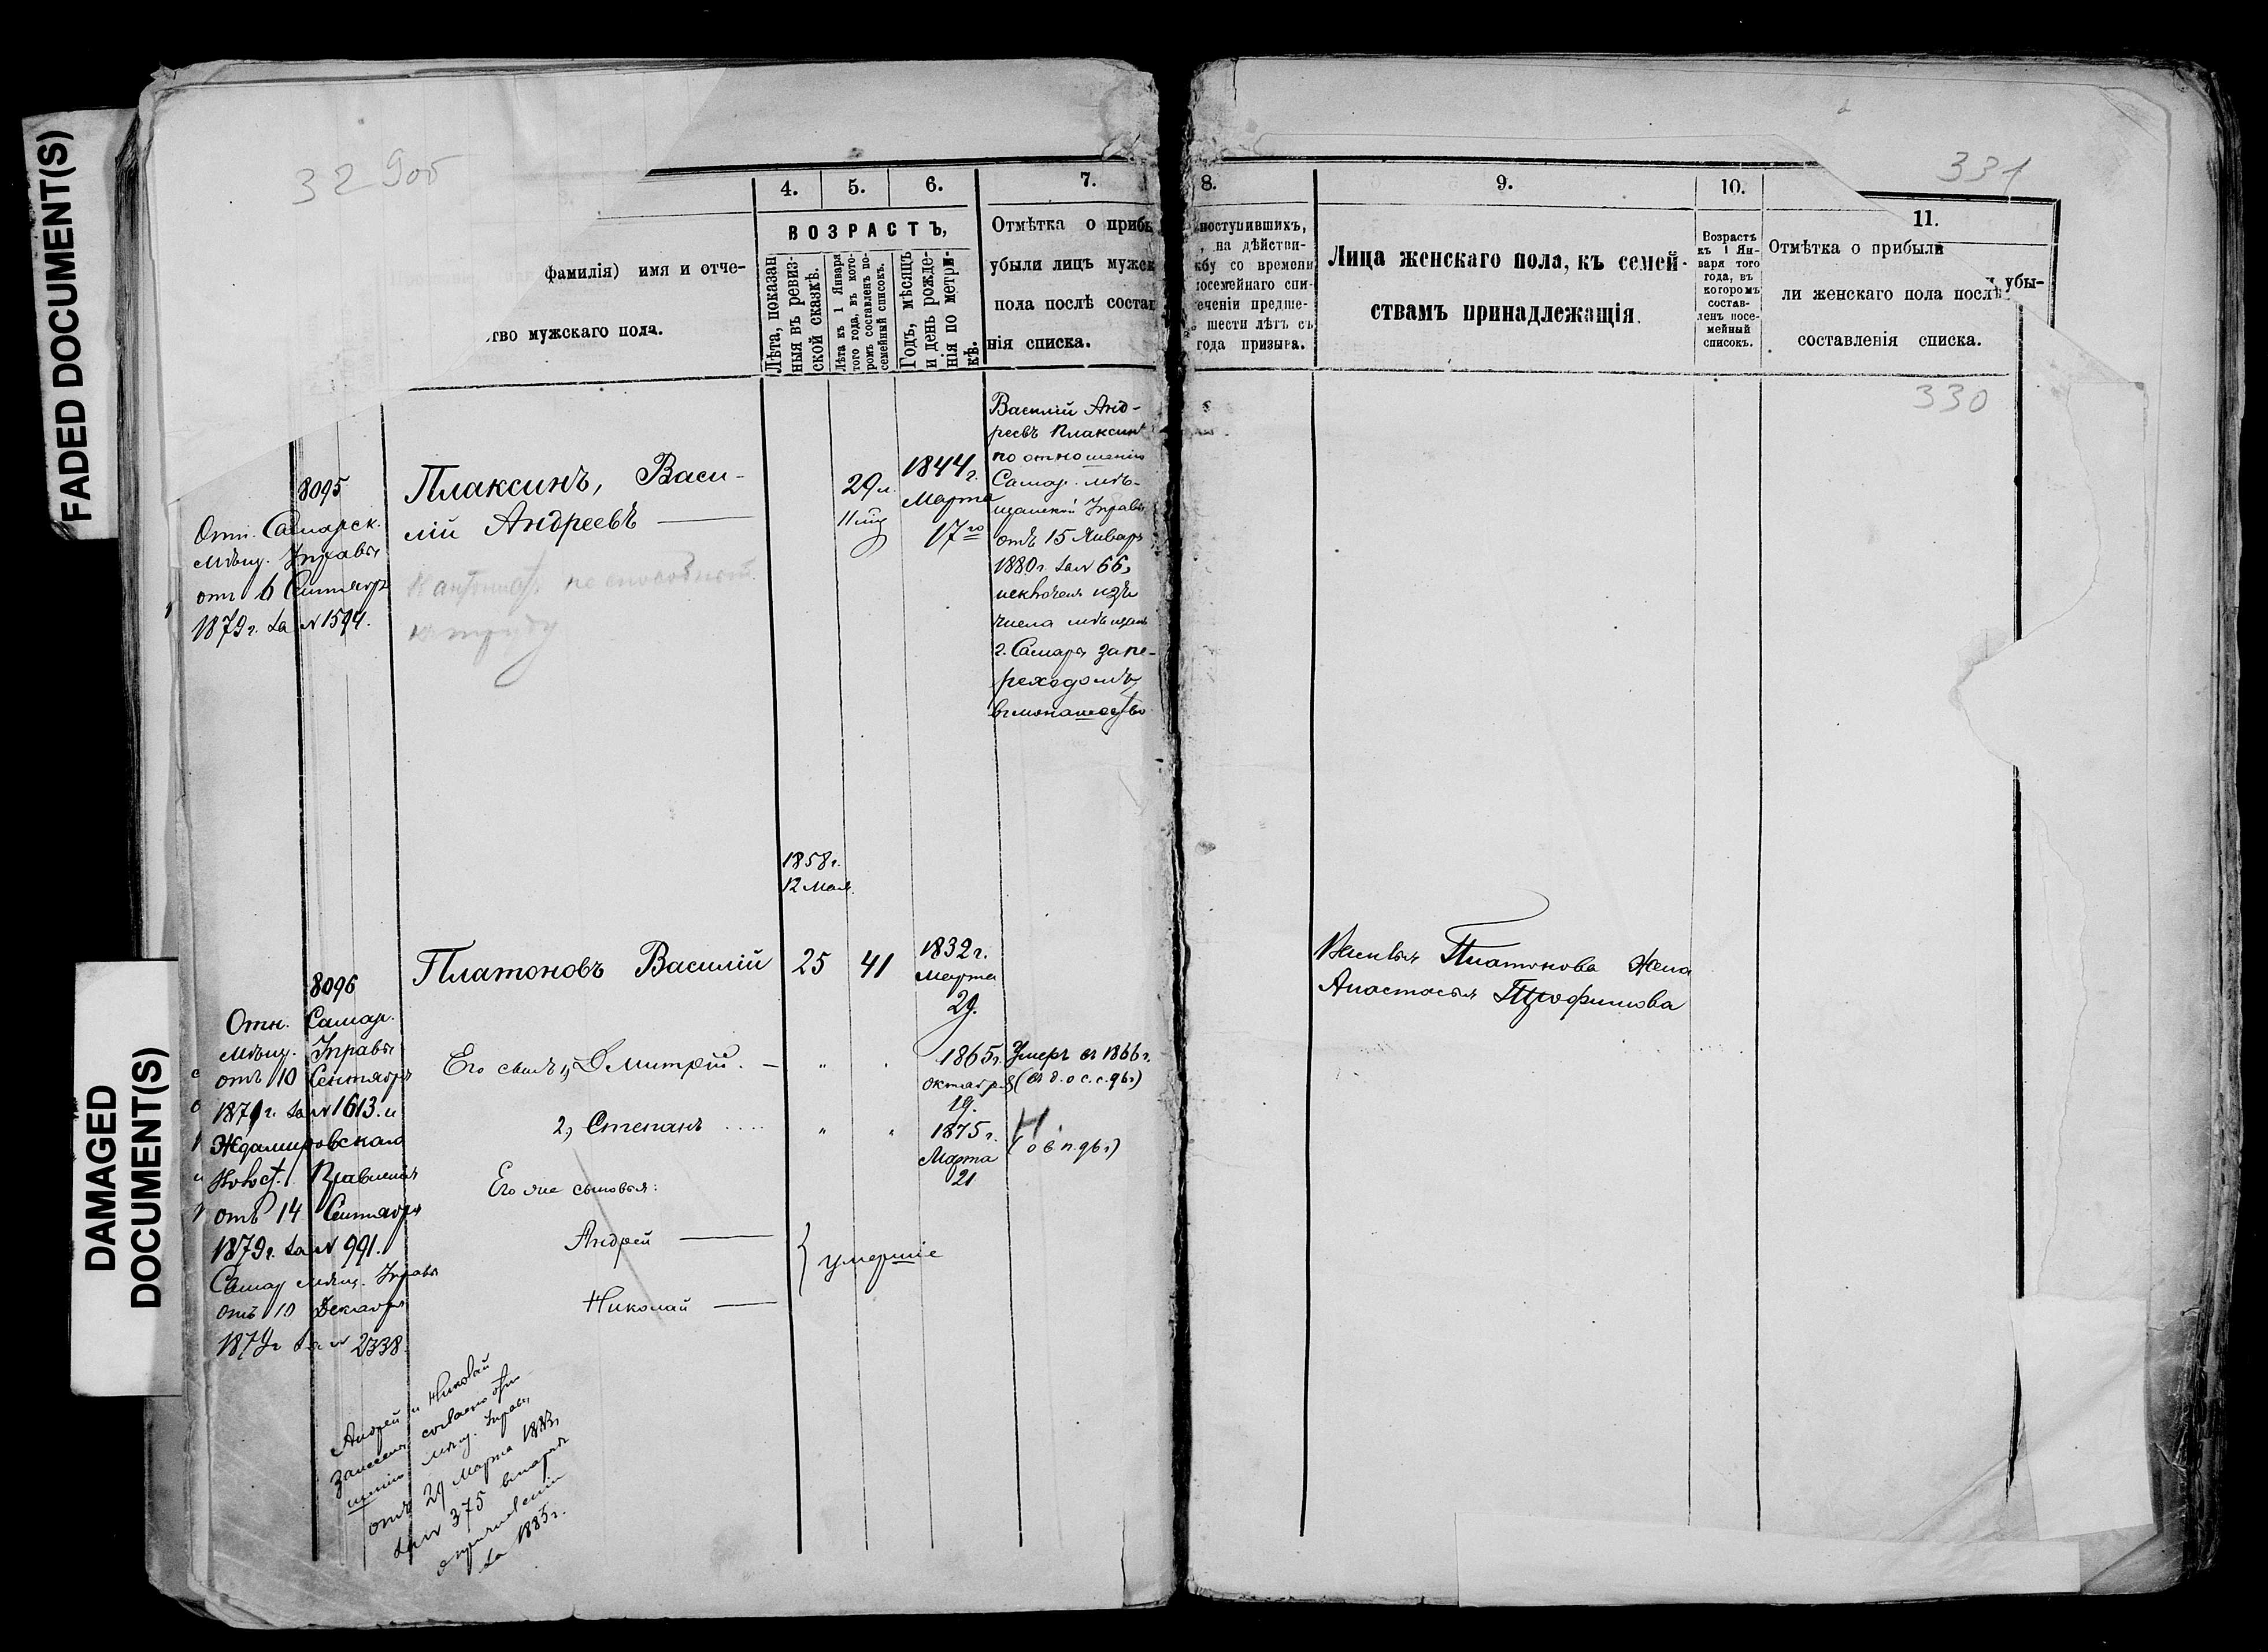 FADED DOCUMENT(S)
DAMAGED
DOCUMENT(S)
32 9об
4. 5. 6. 7.
ВОЗРАСТЪ,
фамилія) имя и отче-
тво мужскаго пола.
Лѣта, показан-
ныя въ ревиз-
ской сказкѣ.
Лѣта къ 1 Января
того года, въ кото-
ромъ составленъ по-
семейный списокъ.
Годъ, мѣсяцъ
и день рожде-
нія по метри-
кѣ.
Отмѣтка о прибы
убыли лицъ мужск
пола послѣ состав
нія списка.
8095
Отн. Самарск.
мѣщ. Управы
отъ 6 Сентября
1879 г. за № 1594.
Плаксинъ, Васи-
лій Андреевъ
29 л.
11 мц
1844 г.
Марта
17го
Василій Анд-
реевъ Плаксинъ
по отношенію
Самар. мѣ-
щанской Управы
отъ 15 Января
1880 г. за № 66,
исключенъ изъ
числа мѣщанъ
г. Самары за пе-
реходомъ
въ монашество
1858 г.
12 Мая.
8096
Отн. Самар.
мѣщ. Управы
отъ 10 Сентября
1879 г. за № 1613. и
Ждамировскаго
Волост. Правленія
отъ 14 Сентября
1879 г. за № 991.
Самар мѣщ. Управы
отъ 10 Декабря
1879 г за № 2338.
Платоновъ Василій 25 41
1832 г.
Марта
29.
Его сынъ 1, Дмитрій. 1865 г.
октября
19.
Умеръ въ 1866 г.
2, Степанъ 1875 г.
Марта
21
Его же сыновья:
Андрей
Николай
умершіе
Андрей и Николай
занесены согласно отно-
шенію мѣщ. Управы
отъ 29 Марта 1883 г.
за № 375
за 1883 г.
331
8. 9. 10. 11.
поступившихъ,
на дѣйстви-
жбу со времени
посемейнаго спи-
еченіи предше-
шести лѣтъ съ
года призыва.
Лица женскаго пола, къ семей-
ствамъ принадлежащія.
Возрастъ
къ 1 Ян-
варя того
года, въ
которомъ
состав-
ленъ посе-
мейный
списокъ.
Отмѣтка о прибыли
и убы-
ли женскаго пола послѣ
составленія списка.
330
Василья Платонова жена
Анастасья Трофимова